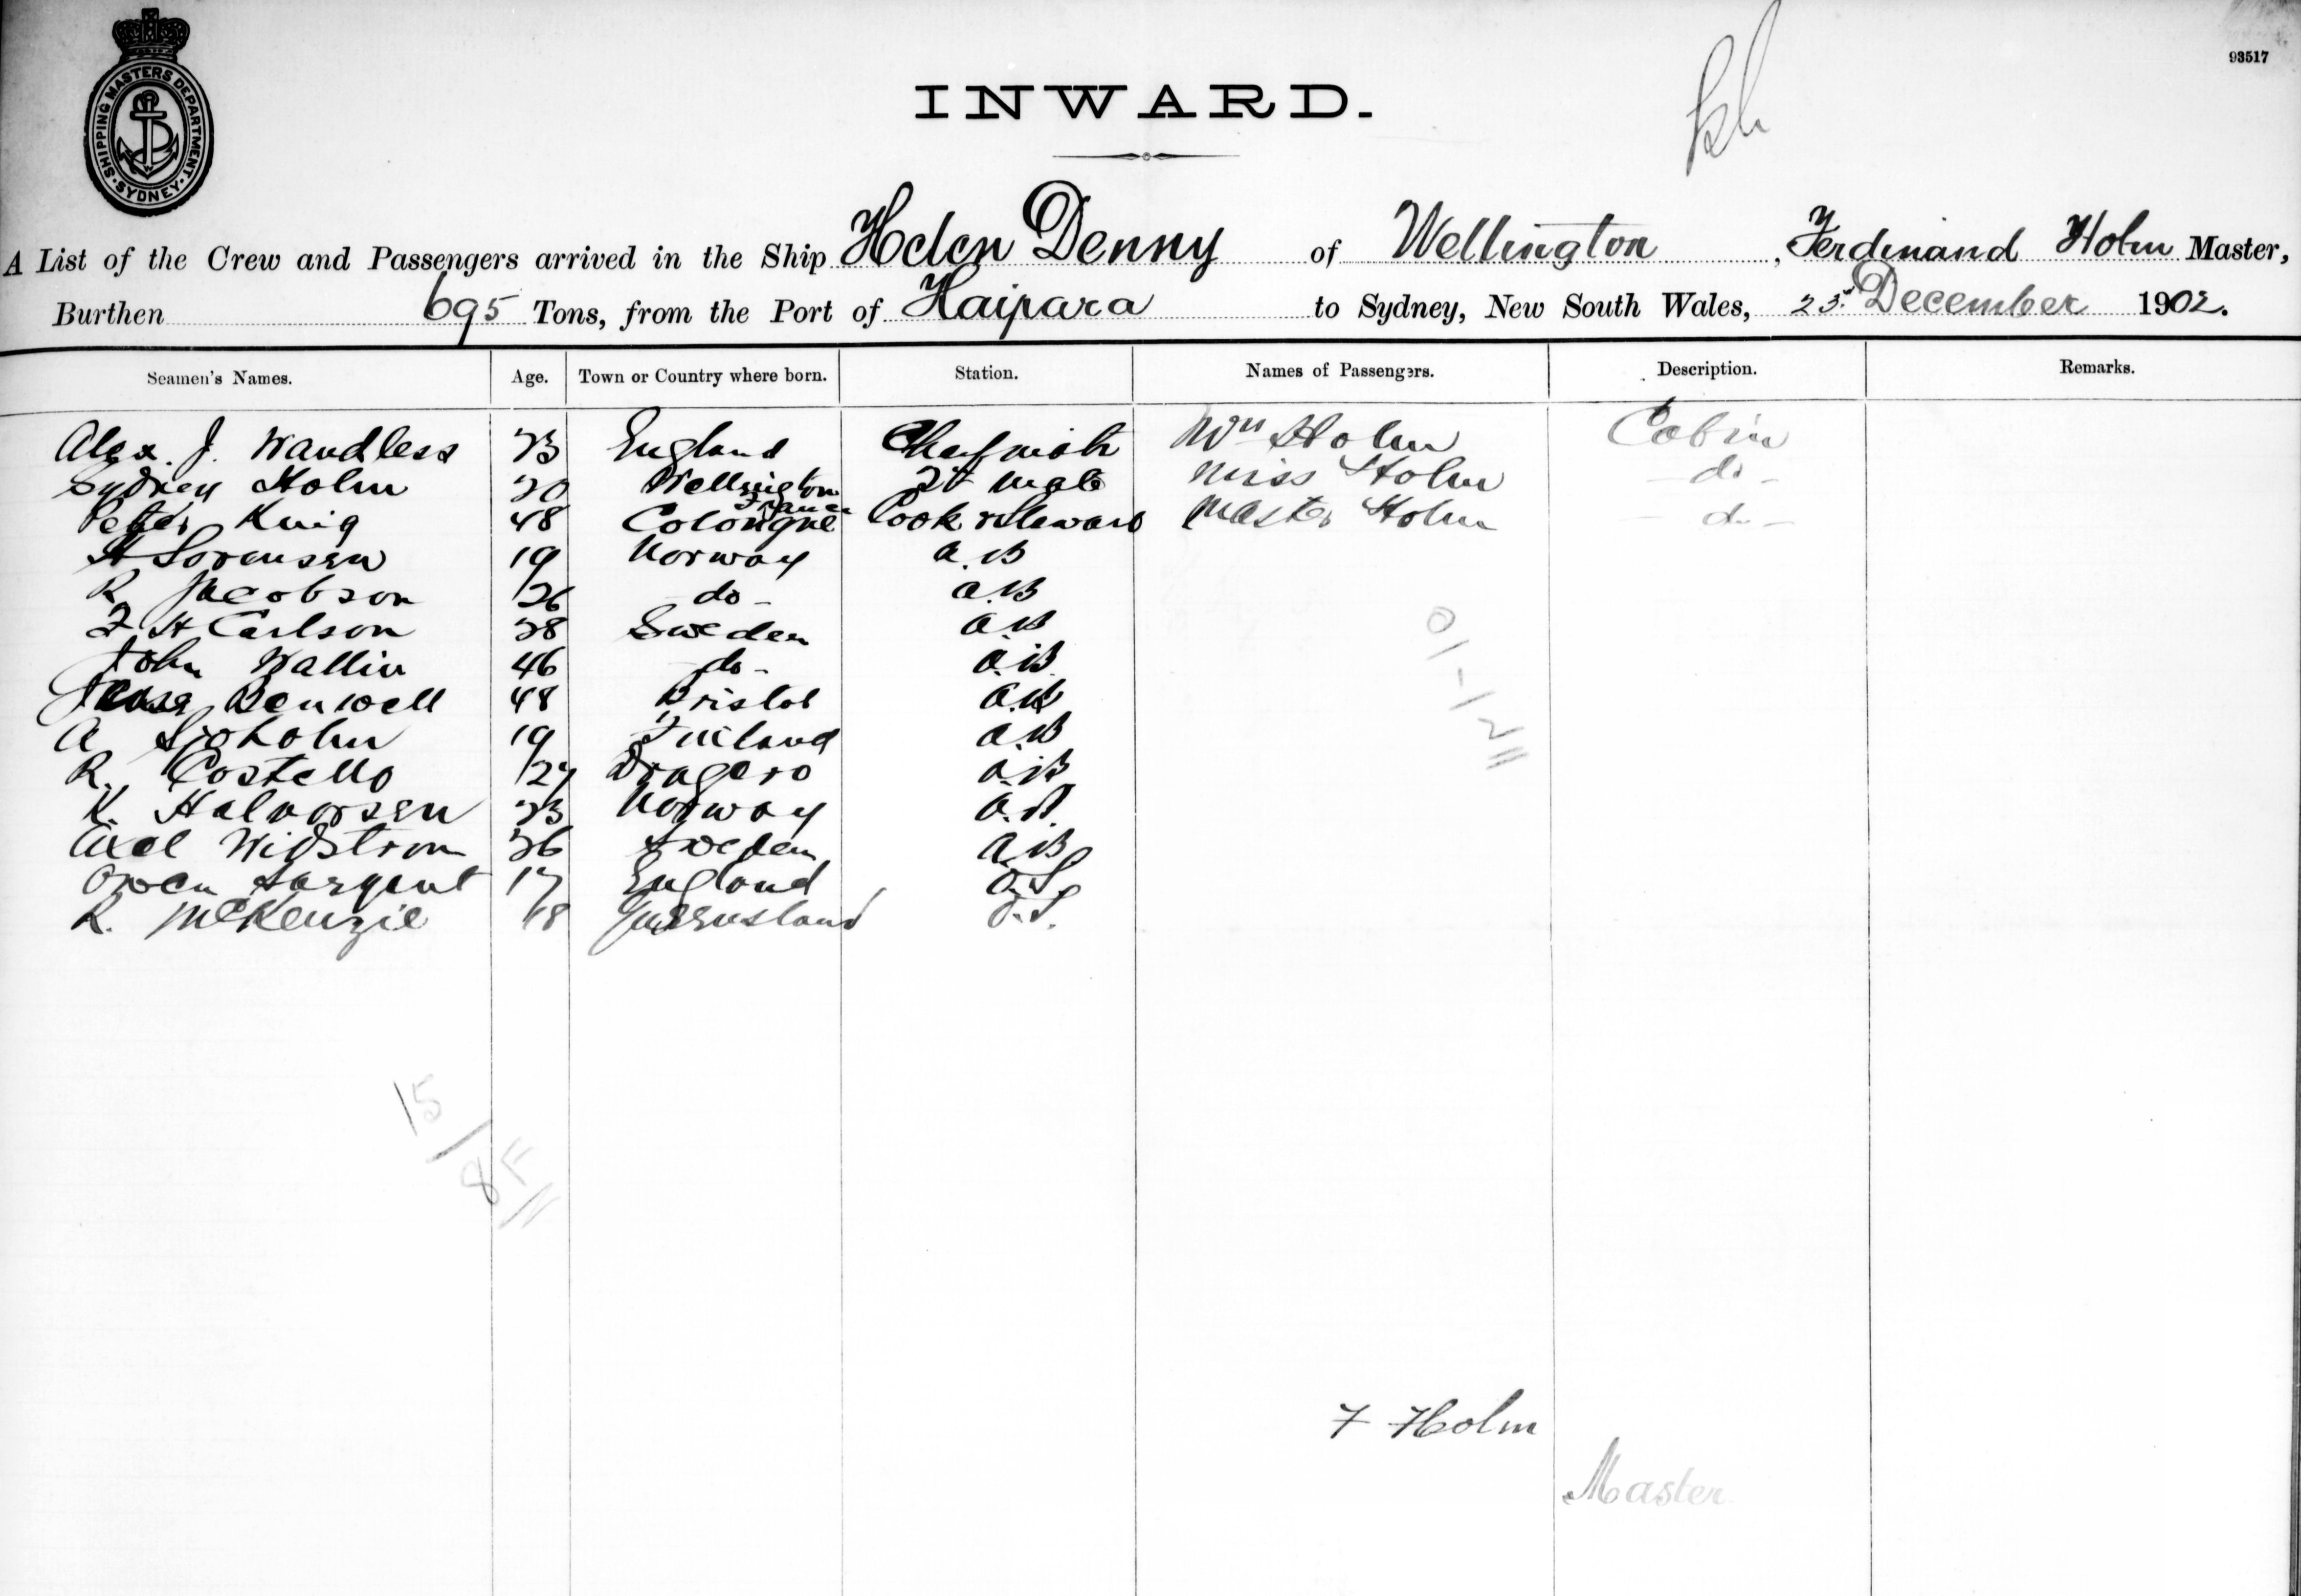 SHIPPING MASTERS DEPARTMENT · SYDNEY ·
93517
INWARD.
A List of the Crew and Passengers arrived in the Ship Helen Denny of Wellington, Ferdinand Holm Master,
Burthen 695 Tons, from the Port of Kaipara to Sydney, New South Wales, 23rd December 1902.
Seamen's Names. Age. Town or Country where born. Station. Names of Passengers. Description. Remarks.
Alex. J. Wandless 33 England Chief mate Mrs Holm Cabin
Sydney Holm 20 Wellington 2d mate Miss Holm - do -
Peter 48 Cologne France Cook & Steward Master Holm - do -
H Sorensen 19 Norway A.B
R Jacobson 26 do - A.B
F H Carlson 38 Sweden A.B
John Wallin 46 - do - A.B.
Benwell 48 Bristol A.B
A Sjoholm 19 Finland A.B
R. Costello 27 A.B
K. Halvorsen 33 Norway A.B.
Axel Widstrom 36 Sweden A.B
Owen Sargent 17 England O.S
R. McKenzie 18 Queensland O.S.
0/-12
15/8F
F Holm
Master